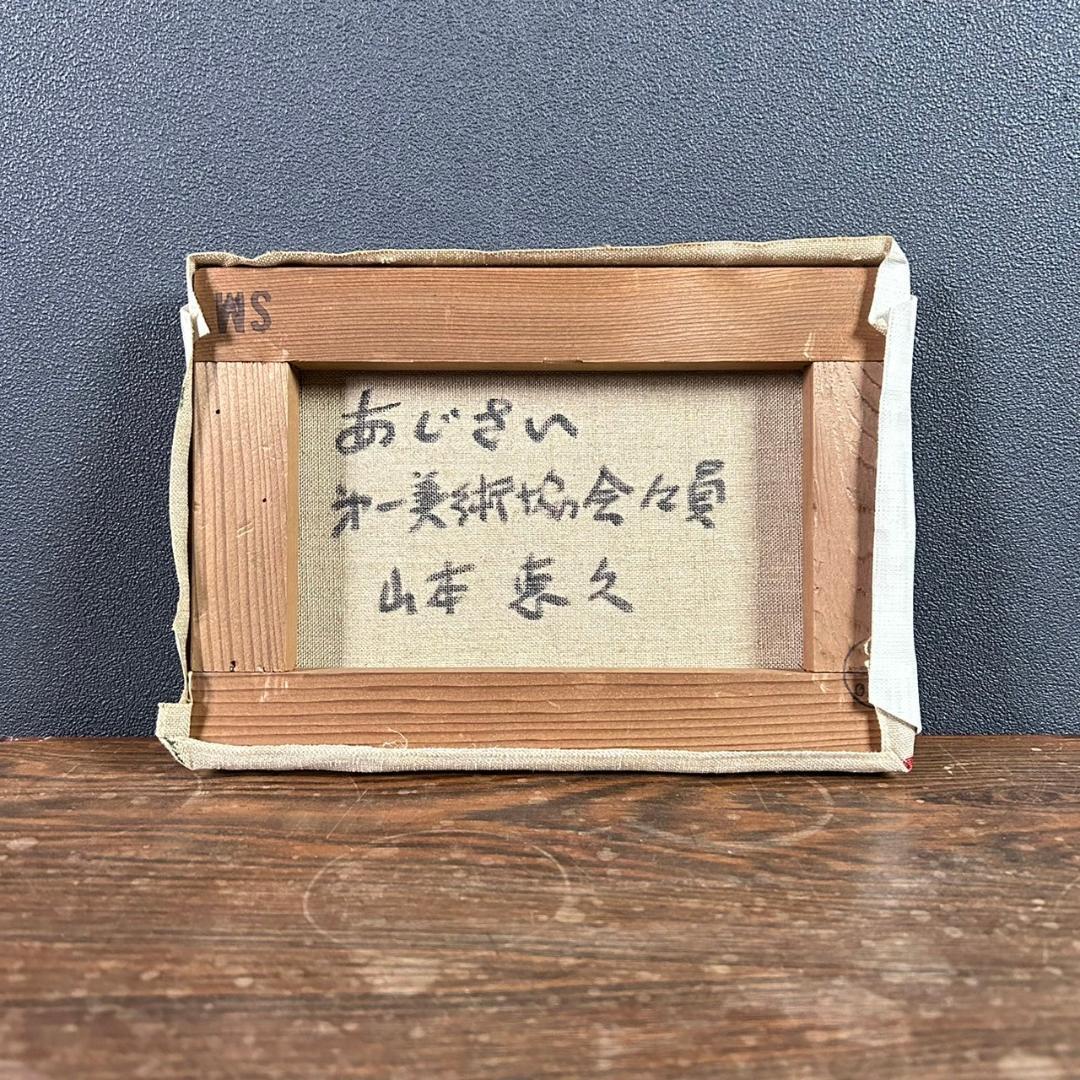 WS
あじさい
才一美術協会々員
山本 恵久